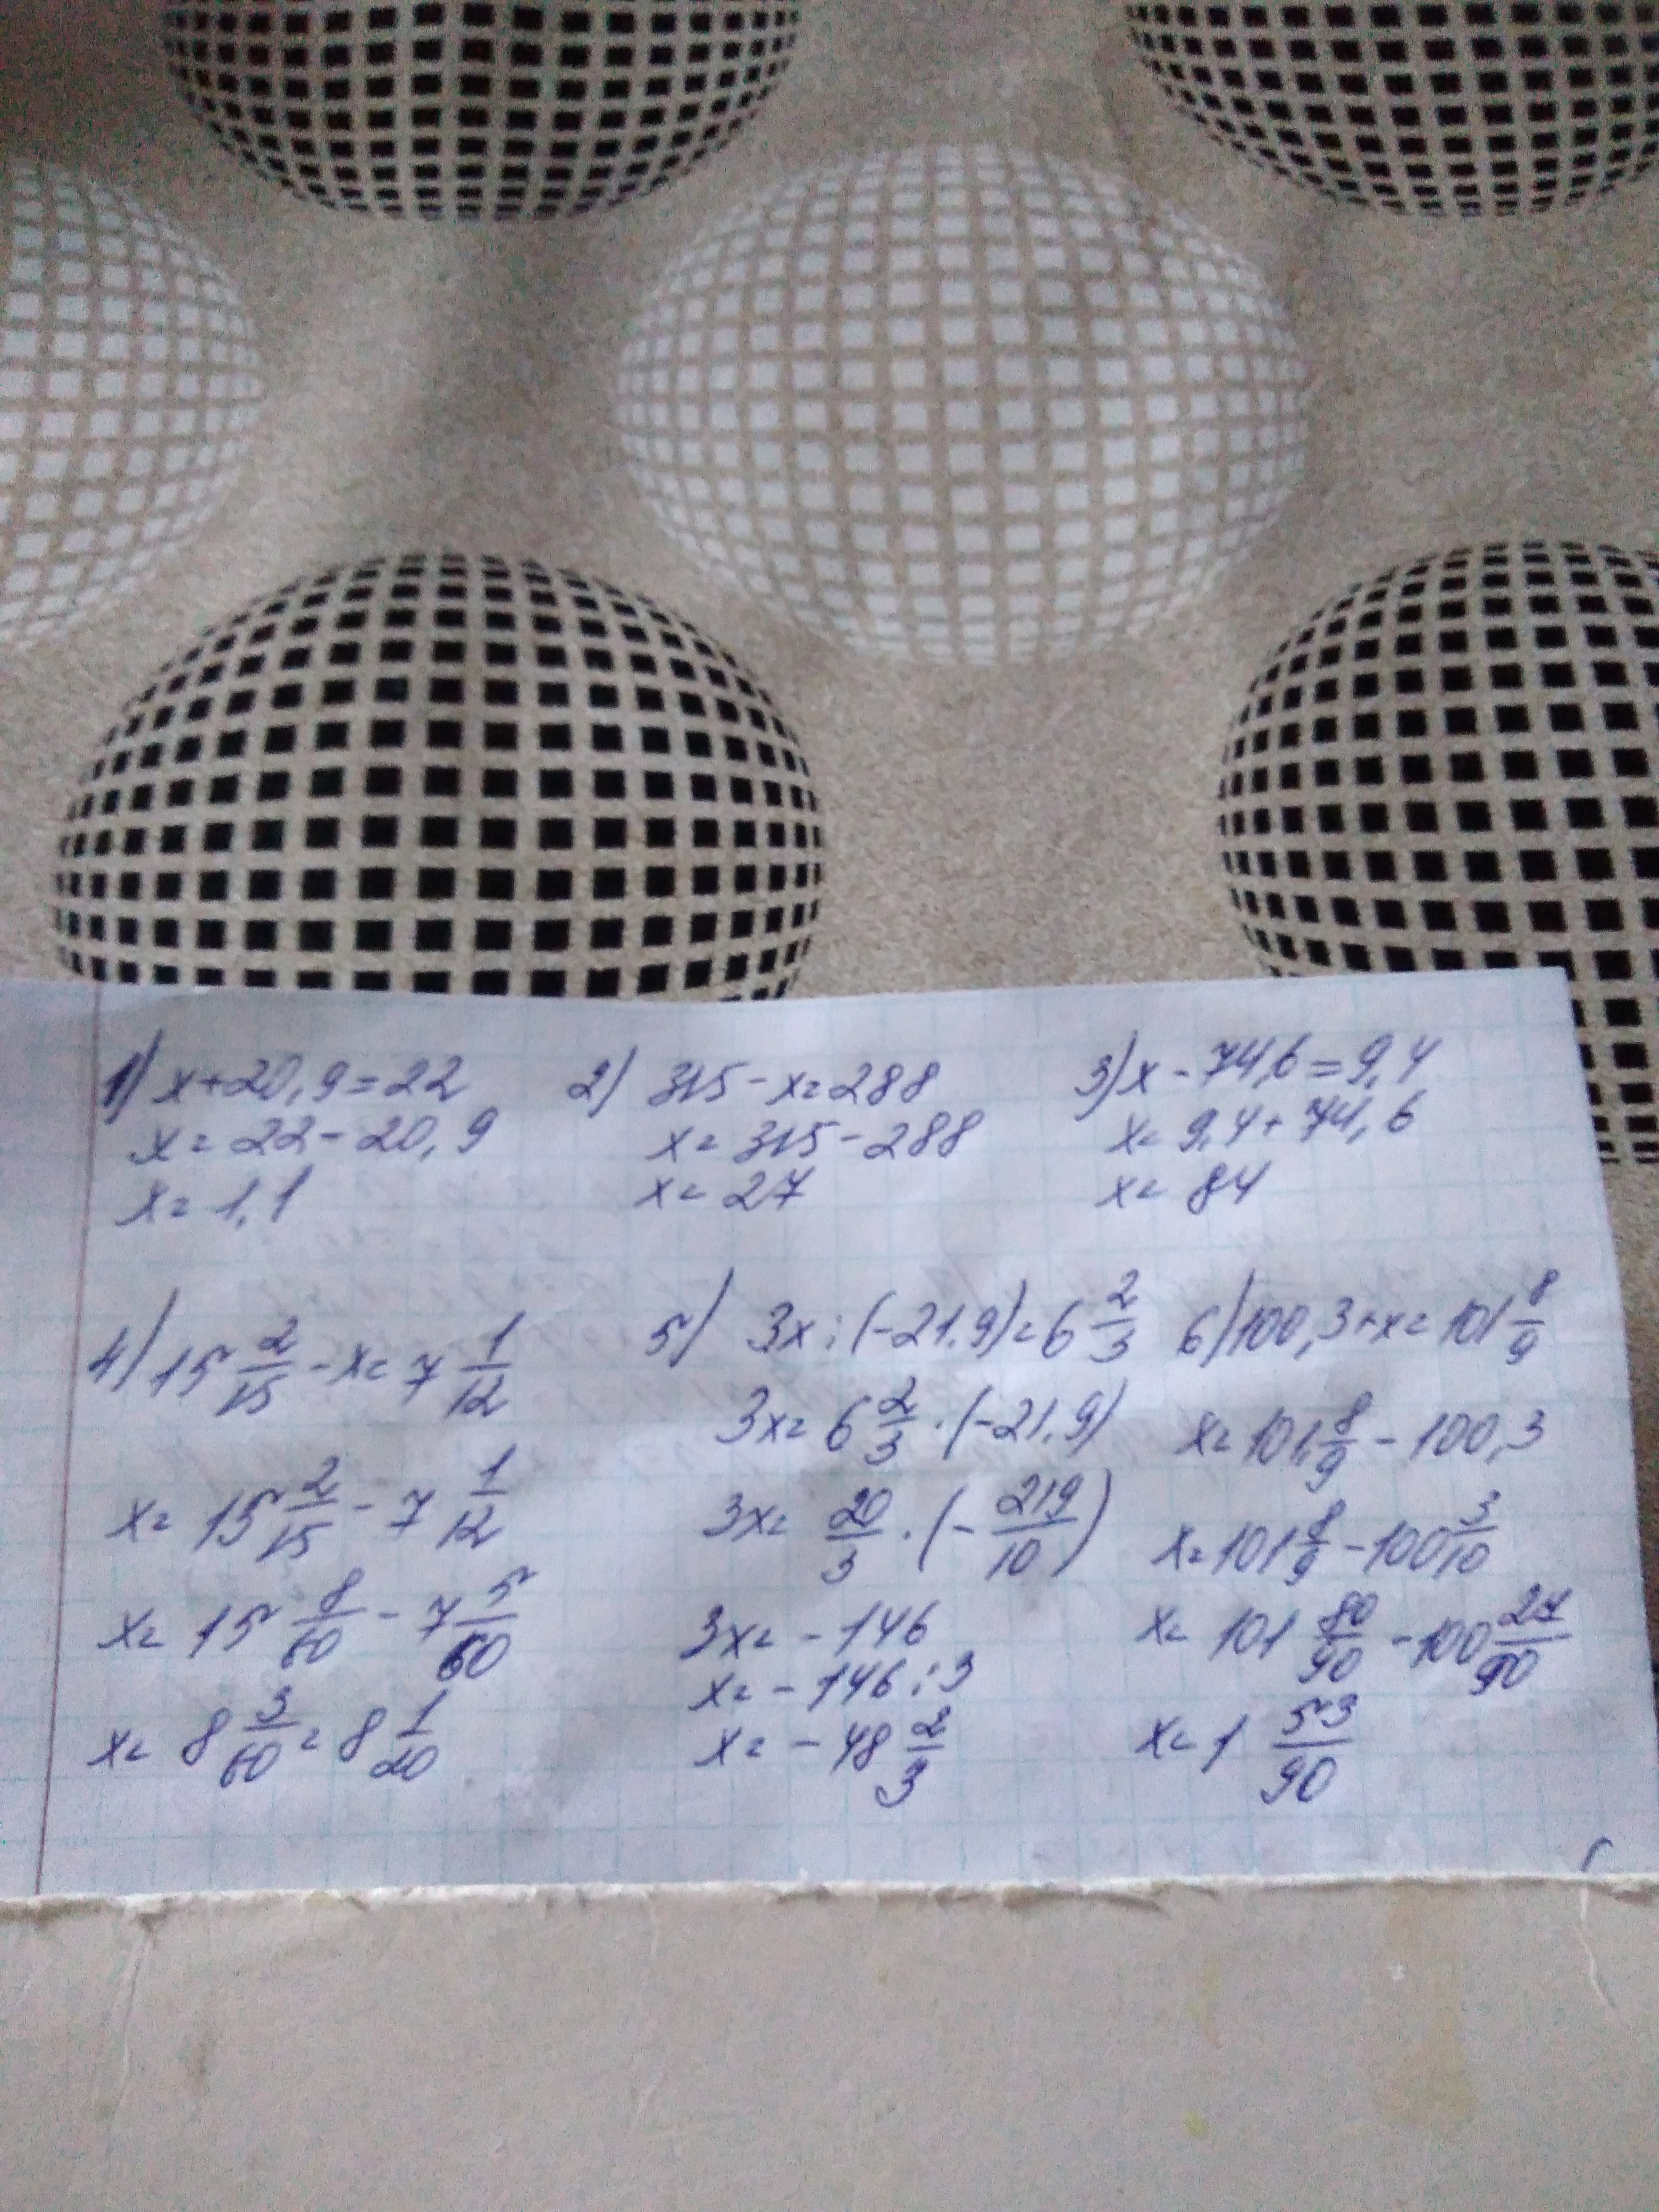 1) x+20,9=22
x=22-20,9
x=1,1
2) 315-x=288
x=315-288
x=27
3) x-74,6=9,4
x=9,4+74,6
x=84
4) 15 2/15 - x = 7 1/12
x= 15 2/15 - 7 1/12
x= 15 8/60 - 7 5/60
x= 8 3/60 = 8 1/20
5) 3x:(-21,9)=6 2/3
3x= 6 2/3 · (-21,9)
3x= 20/3 · (- 219/10)
3x= -146
x= -146:3
x= -48 2/3
6) 100,3+x=101 8/9
x= 101 8/9 - 100,3
x= 101 8/9 - 100 3/10
x= 101 80/90 - 100 27/90
x= 1 53/90